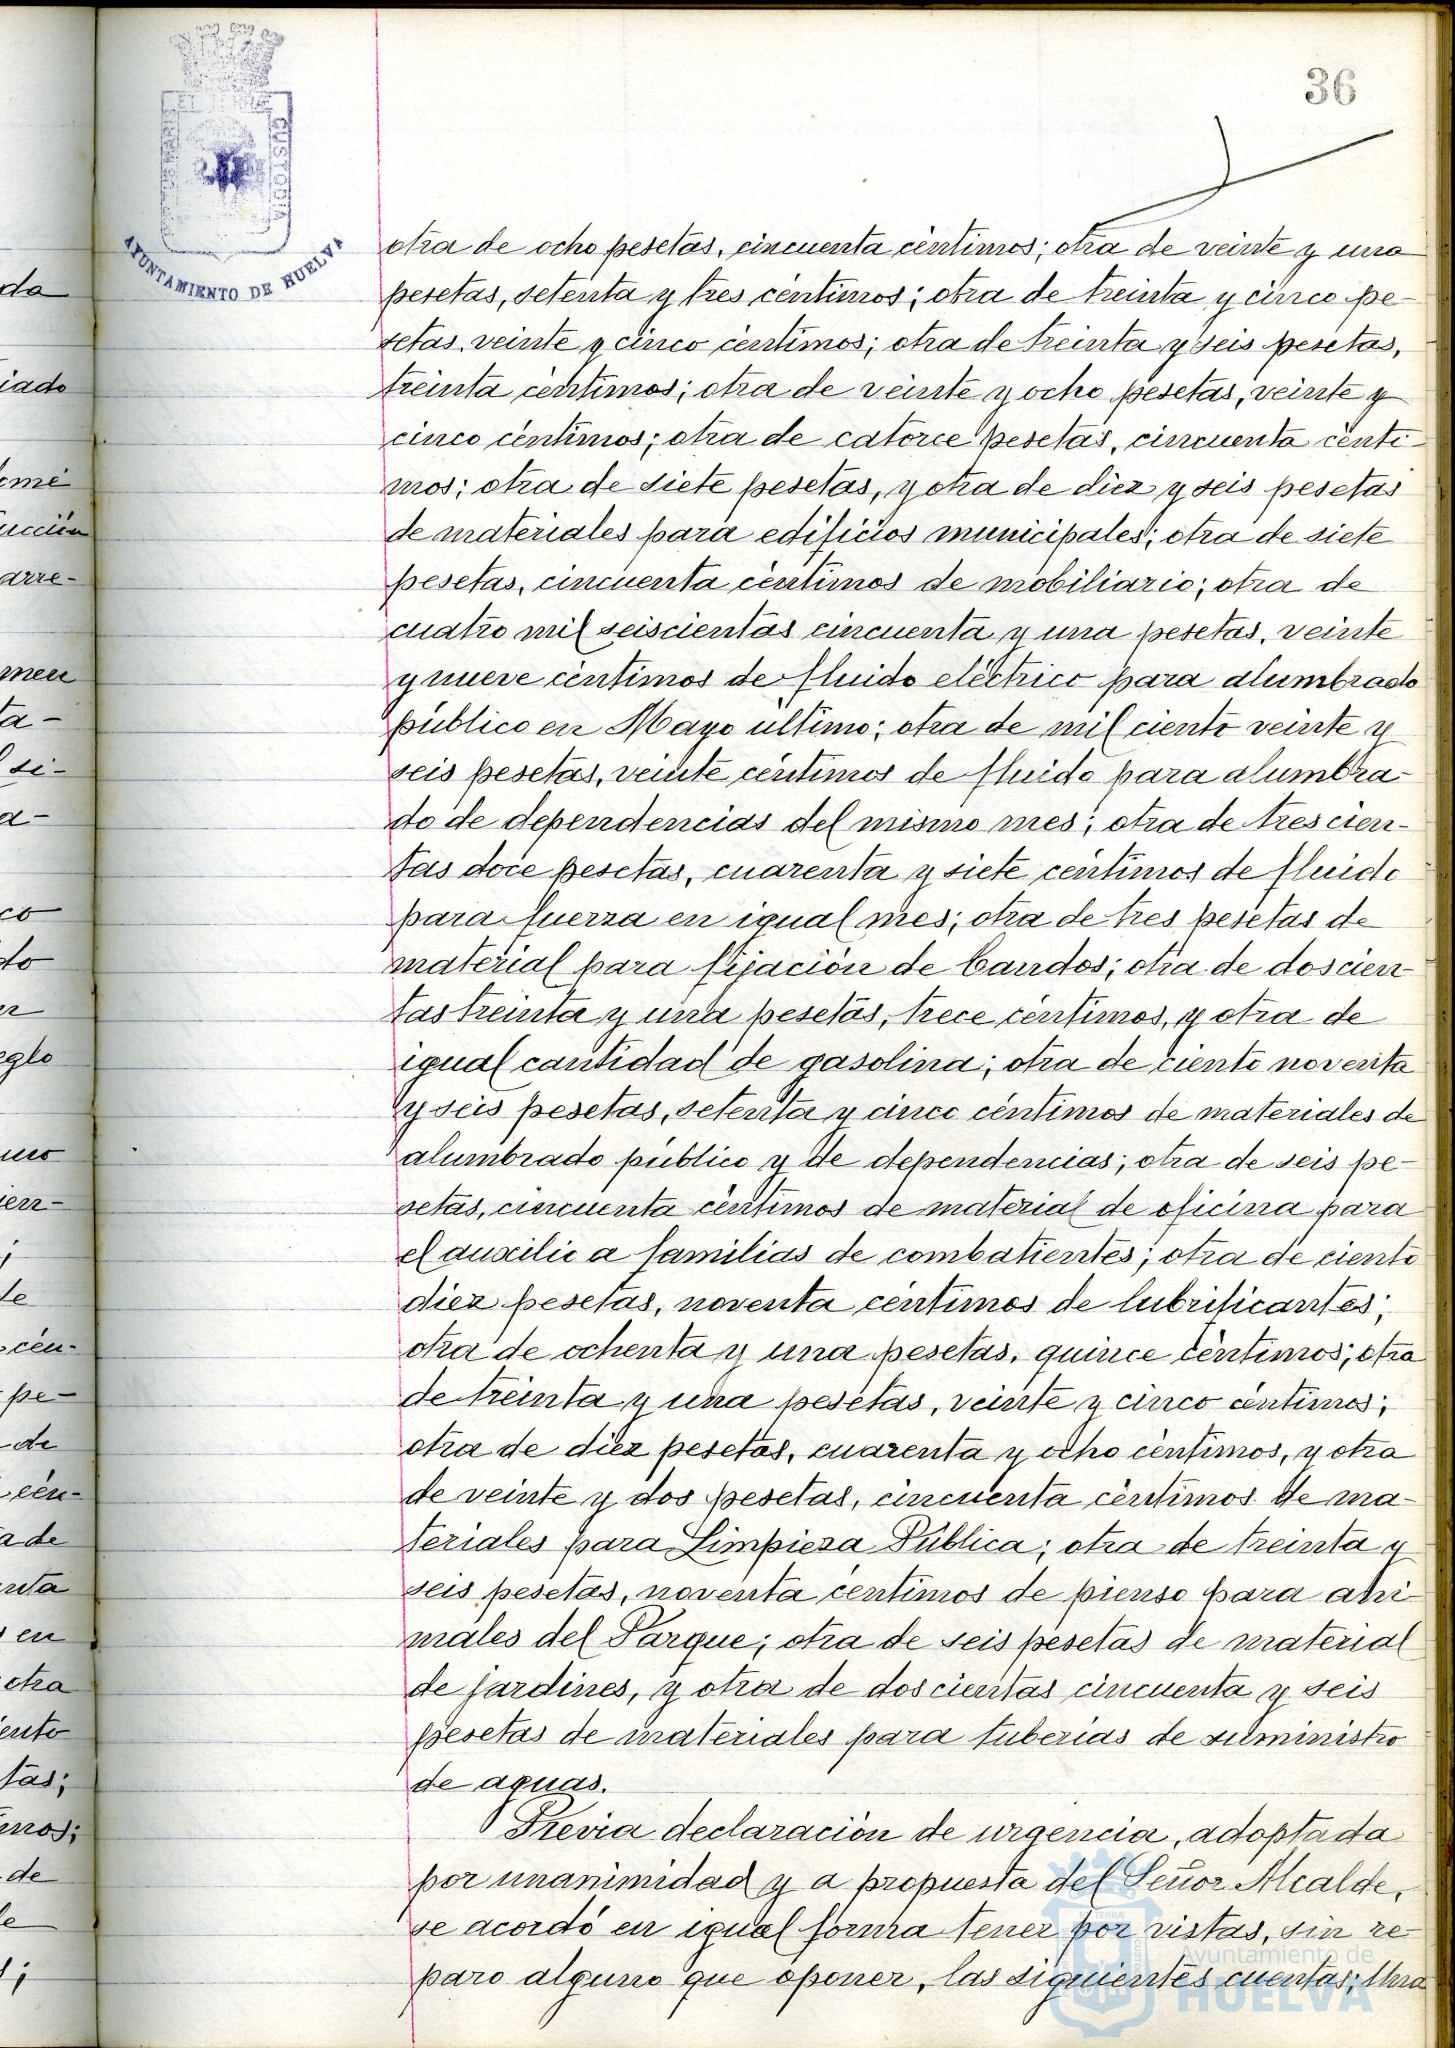 36
PORTUS MARIS ET TERRAE CUSTODIA
AYUNTAMIENTO DE HUELVA
otra de ocho pesetas, cincuenta céntimos; otra de veinte y una
pesetas, setenta y tres céntimos; otra de treinta y cinco pe-
setas, veinte y cinco céntimos; otra de treinta y seis pesetas,
treinta céntimos; otra de veinte y ocho pesetas, veinte y
cinco céntimos; otra de catorce pesetas, cincuenta cénti-
mos; otra de siete pesetas, y otra de diez y seis pesetas
de materiales para edificios municipales; otra de siete
pesetas, cincuenta céntimos de mobiliario; otra de
cuatro mil seiscientas cincuenta y una pesetas, veinte
y nueve céntimos de fluido eléctrico para alumbrado
público en Mayo último; otra de mil ciento veinte y
seis pesetas, veinte céntimos de fluido para alumbra-
do de dependencias del mismo mes; otra de trescien-
tas doce pesetas, cuarenta y siete céntimos de fluido
para fuerza en igual mes; otra de tres pesetas de
material para fijación de Bandos; otra de doscien-
tas treinta y una pesetas, trece céntimos, y otra de
igual cantidad de gasolina; otra de ciento noventa
y seis pesetas, setenta y cinco céntimos de materiales de
alumbrado público y de dependencias; otra de seis pe-
setas, cincuenta céntimos de material de oficina para
el auxilio a familias de combatientes; otra de ciento
diez pesetas, noventa céntimos de lubrificantes;
otra de ochenta y una pesetas, quince céntimos; otra
de treinta y una pesetas, veinte y cinco céntimos;
otra de diez pesetas, cuarenta y ocho céntimos, y otra
de veinte y dos pesetas, cincuenta céntimos de ma-
teriales para Limpieza Pública; otra de treinta y
seis pesetas, noventa céntimos de pienso para ani-
males del Parque; otra de seis pesetas de material
de jardines, y otra de doscientas cincuenta y seis
pesetas de materiales para tuberias de suministro
de aguas.
Previa declaración de urgencia, adoptada
por unanimidad y a propuesta del Señor Alcalde,
se acordó en igual forma tener por vistas, sin re-
paro alguno que oponer, las siguientes cuentas; Una
Ayuntamiento de
HUELVA